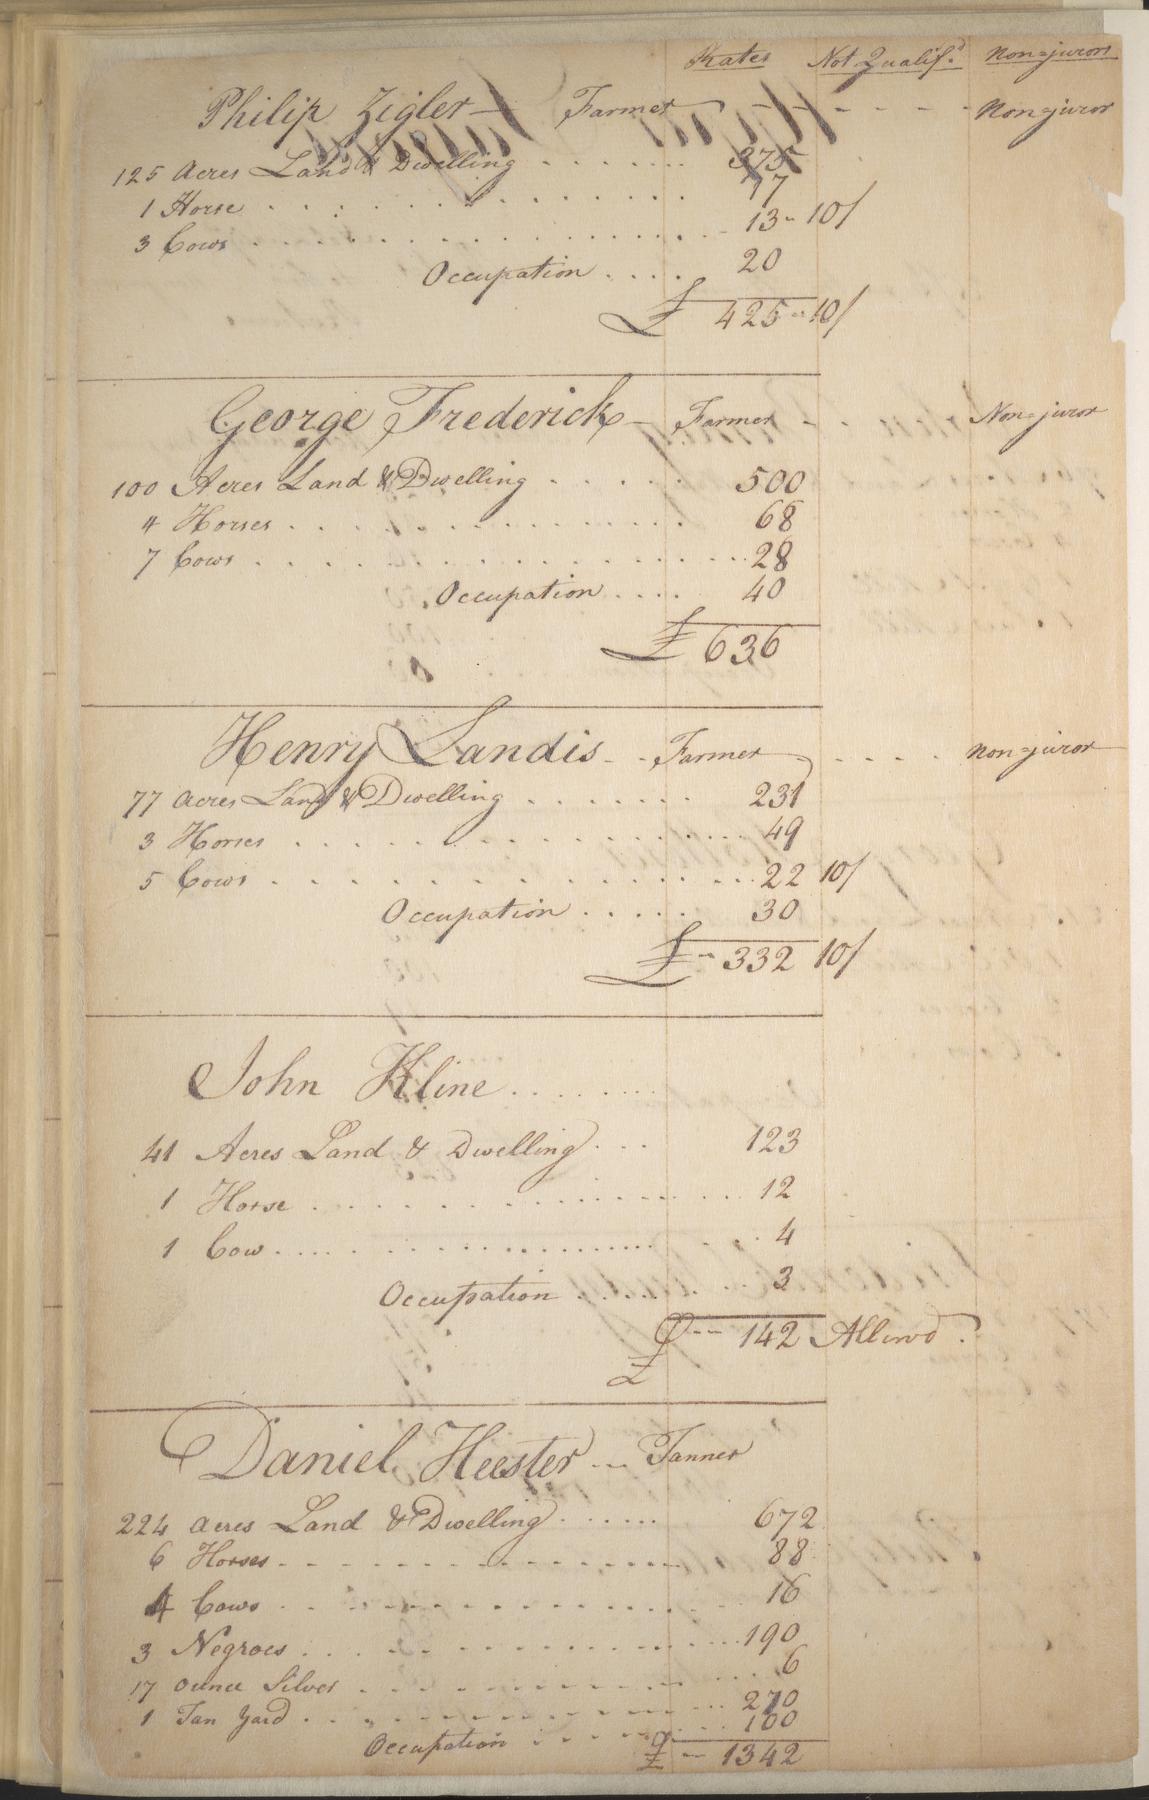 Rates Not Qualif.d Non=jurors
Philip Zigler — Farmer - - - - Non=juror
125 Acres Land & Dwelling . . . . . . . 375
1 Horse . . . . . . . . . . . . 17
3 Cows . . . . . . . . . . . . 13 - 10/
Occupation . . . . 20
£ 425 - 10/
George Frederick — Farmer - - - Non=juror
100 Acres Land & Dwelling . . . . . 500
4 Horses . . . . . . . . . . . . 68
7 Cows . . . . . . . . . . . . 28
Occupation . . . . 40
£ 636
Henry Landis - - Farmer . . . . non=juror
77 Acres Land & Dwelling . . . . . . . 231
3 Horses . . . . . . . . . . . . 49
5 Cows . . . . . . . . . . . . 22 10/
Occupation . . . . . 30
£ - 332 10/
John Kline . . . . . . .
41 Acres Land & Dwelling . . . 123
1 Horse . . . . . . . . . . . . 12
1 Cow . . . . . . . . . . . . 4
Occupation . . . . . . 3
£ -- 142 Allowd .
Daniel Heester - - - Tanner
224 Acres Land & Dwelling . . . . . . 672
6 Horses - - - - - - - - - - 88
4 Cows . . - - - - - - - - . . 16
3 Negroes . . . . . . . . . . . . 190
17 ounce Silver . . . . . . . . . . . . 6
1 Tan Yard . . . . . . . . . . . . 270
Occupation . . . . . . . . 100
£ - 1342